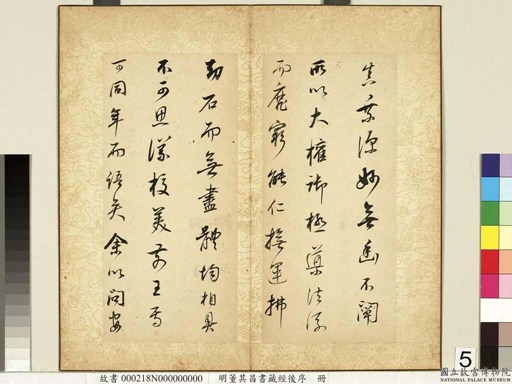 妙無幽不闡
所以大權御極導法流
而靡窮能仁撫運拂
劫石而無盡體均相具
不可思議校美前王焉
可同年而語矣余以問安
5
國立故宮博物院
NATIONAL PALACE MUSEUM
故書 000218N000000000 明董其昌書藏經後序 冊